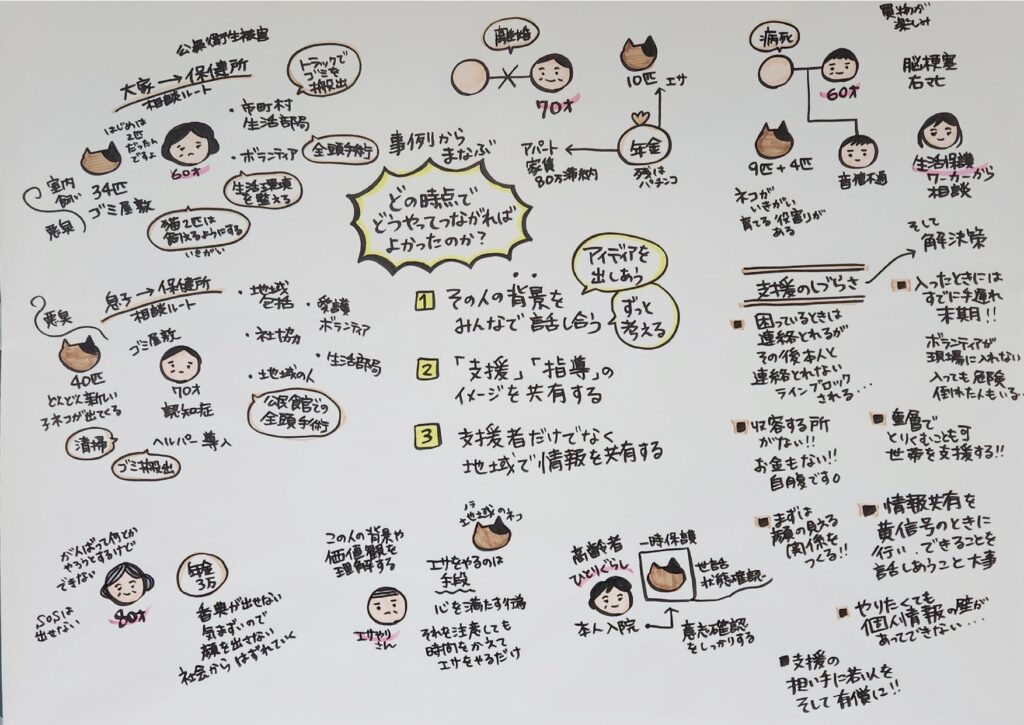 公衆衛生獣医
大家→保健所
相談ルート
トラックで
ゴミを
搬出
はじめは
2匹
だったん
ですよ
60才
・市町村
生活部局
・ボランティア
全頭手術
生活環境
を整える
室内
飼い
悪臭
34匹
ゴミ屋敷
猫2匹は
飼えるようにする
いきがい
離婚
70才
10匹
エサ
年金
アパート
家賃
80万滞納
残は
パチンコ
買物が
楽しみ
病死
60才
脳梗塞
右マヒ
9匹+4匹
音信不通
生活保護
ワーカーから
相談
ネコが
いきがい
育てる役割りが
ある
事例から
まなぶ
どの時点で
どうやってつながれば
よかったのか?
アイディアを
出しあう
ずっと
考える
1 その人の背景を
みんなで話し合う
2 「支援」「指導」の
イメージを共有する
3 支援者だけでなく
地域で情報を共有する
悪臭
息子→保健所
相談ルート
ゴミ屋敷
40匹
どんどん新しい
子ネコが出てくる
70才
認知症
・地域
包括
・愛護
ボランティア
・社協
・生活部局
・地域の人
公民館での
全頭手術
清掃
ヘルパー導入
ゴミ搬出
支援のしづらさ
そして
解決策
■困っているときは
連絡とれるが
その後本人と
連絡とれない
ラインブロック
される・・・
■入ったときには
すでに手遅れ
末期!!
ボランティアが
現場に入れない
入っても危険
倒れたんもいる・・
■収容する所
がない!!
お金もない!!
自腹です。
■重層で
とりくむことも可
世帯を支援する!!
■まずは
顔の見える
関係を
つくる!!
■情報共有を
黄信号のときに
行い、できることを
話しあうこと大事
■やりたくても
個人情報の壁が
あってできない・・・
■支援の
担い手に若い人を
そして有償に!!
がんばって何とか
やろうとするけど
できない
SOSは
出せない
80才
年金
3万
香典が出せない
気まずいので
顔を出さない
社会からはずれていく
この人の背景や
価値観を
理解する
エサやり
さん
ノラ
地域のネコ
エサをやるのは
手段
心を満たす行為
それを注意しても
時間をかえて
エサをやるだけ
高齢者
ひとりぐらし
本人入院
一時保護
世話
状態確認
意志確認
をしっかりする